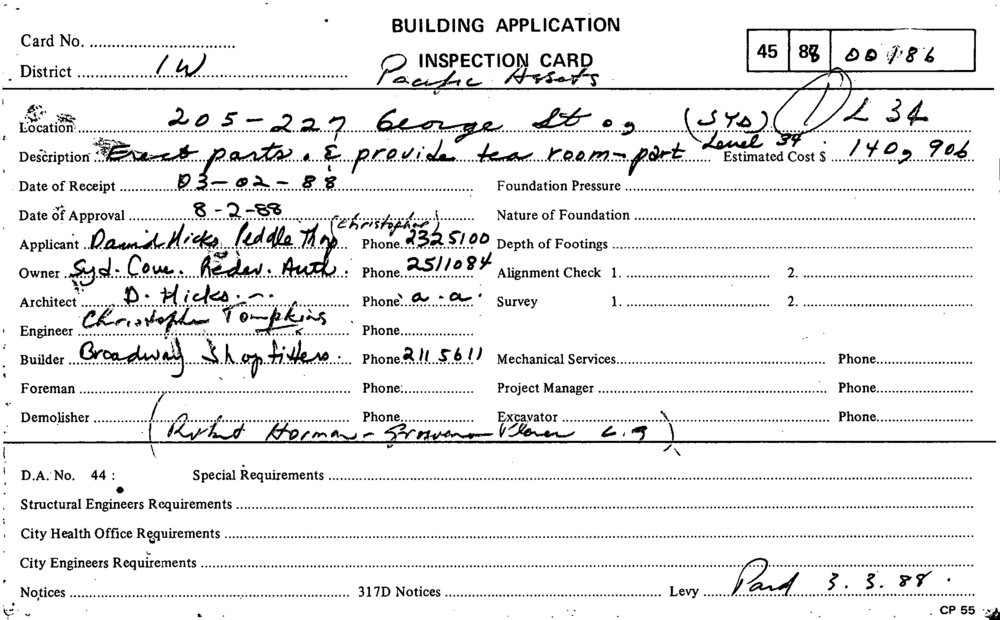 BUILDING APPLICATION
Card No.
INSPECTION CARD
45 88 00186
District 1W
Pacific Assets
Location 205-227 George St (SYD) L 34
Description Erect parts. & provide tea room-part Level 34 Estimated Cost $ 140,906
Date of Receipt 03-02-88 Foundation Pressure
Date of Approval 8-2-88 Nature of Foundation
(Christopher)
Applicant David Hicks Peddle Thorp Phone 2325100 Depth of Footings
Owner Syd. Cove. Redev. Auth. Phone 2511084 Alignment Check 1. 2.
Architect D. Hicks Phone a.a. Survey 1. 2.
Engineer Christopher Tompkins Phone
Builder Broadway Shopfitters. Phone 211 5611 Mechanical Services Phone
Foreman Phone Project Manager Phone
Demolisher Phone Excavator Phone
(Robert Horman - Grosvenor Place)
D.A. No. 44 : Special Requirements
Structural Engineers Requirements
City Health Office Requirements
City Engineers Requirements
Notices 317D Notices Levy Paid 3.3.88.
CP 55